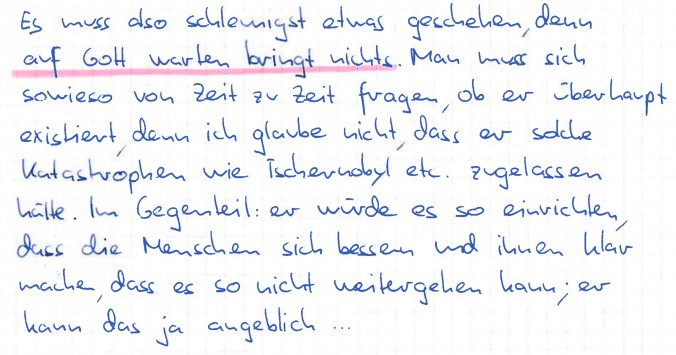 Es muss also schleunigst etwas geschehen, denn
auf Gott warten bringt nichts. Man muss sich
sowieso von Zeit zu Zeit fragen, ob er überhaupt
existiert, denn ich glaube nicht, dass er solche
Katastrophen wie Tschernobyl etc. zugelassen
hätte. Im Gegenteil: er würde es so einrichten,
dass die Menschen sich bessern und ihnen klar
machen, dass es so nicht weitergehen kann; er
kann das ja angeblich ...